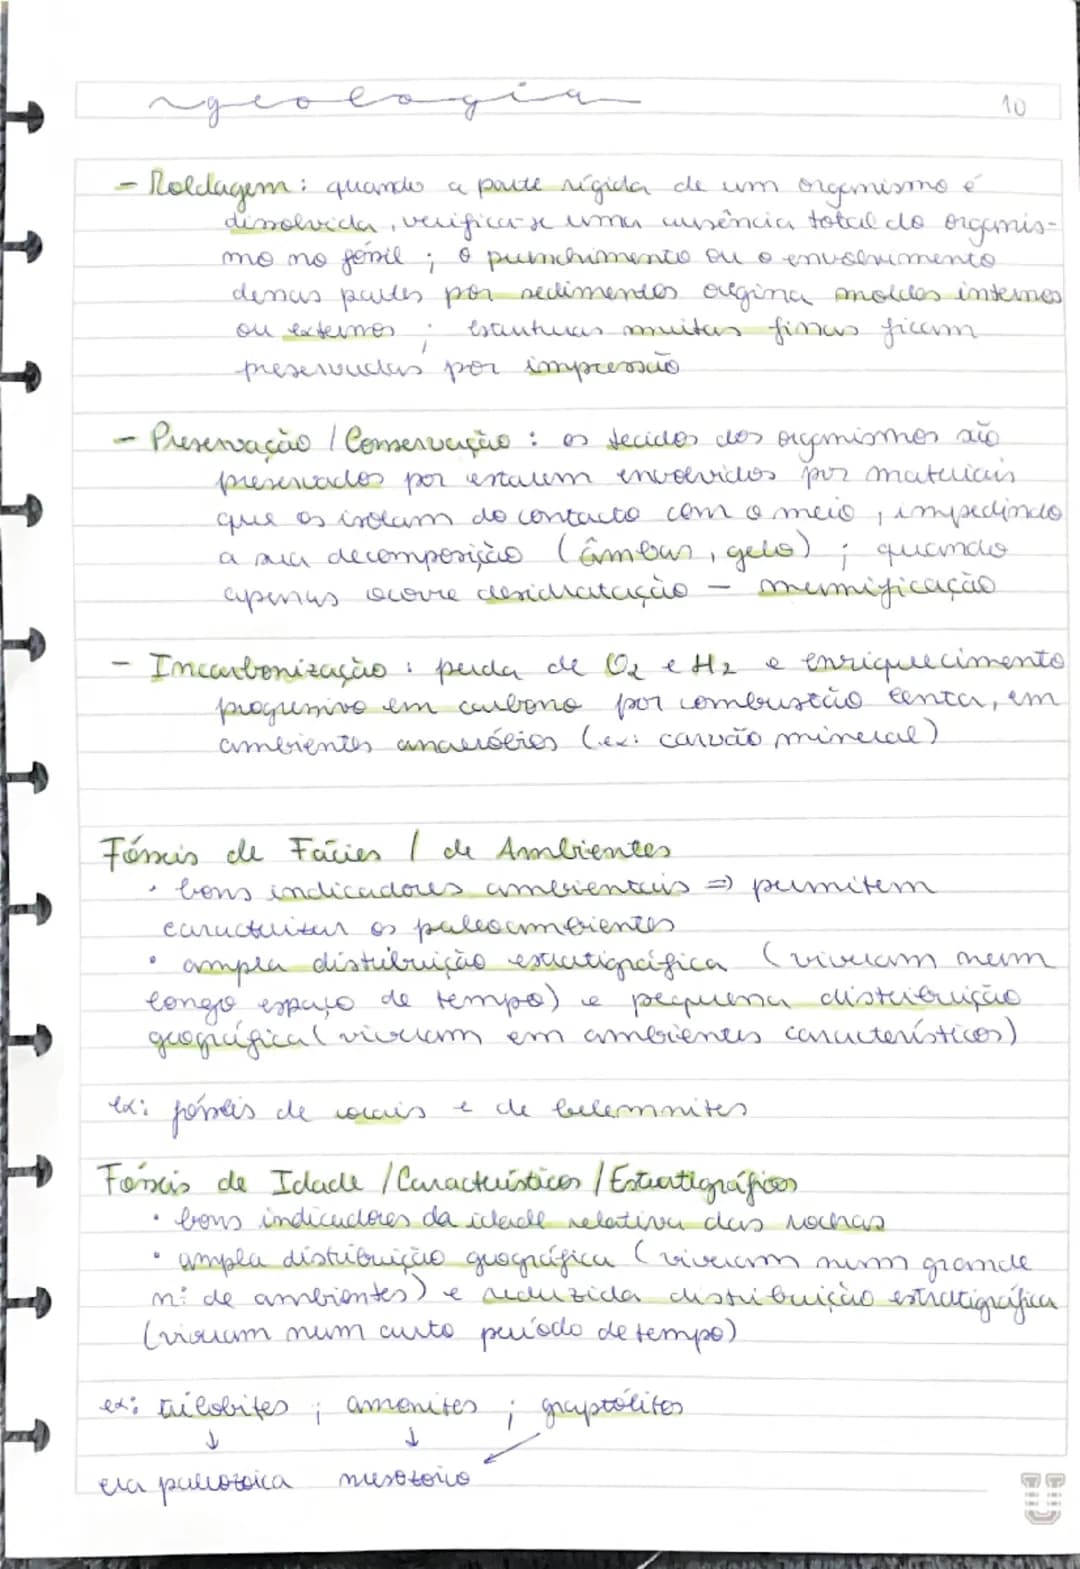 geologia 10
- Moldagem: quando a parte rígida de um organismo é
dissolvida, verifica-se uma ausência total do organis-
mo no fóssil; o preenchimento ou o envolvimento
dessas partes por sedimentos origina moldes internos
ou externos; estruturas muitas finas ficam
preservadas por impressão
- Preservação / Conservação: os tecidos dos organismos são
preservados por estarem envolvidos por materiais
que os isolam do contacto com o meio, impedindo
a sua decomposição (âmbar, gelo); quando
apenas ocorre desidratação - mumificação
- Incarbonização: perda de O2 e H2 e enriquecimento
progressivo em carbono por combustão lenta, em
ambientes anaeróbios (ex: carvão mineral)
Fósseis de Fácies / de Ambientes
• bons indicadores ambientais => permitem
caracterizar os paleoambientes
• ampla distribuição estratigráfica (viveram num
longo espaço de tempo) e pequena distribuição
geográfica (viveram em ambientes característicos)
ex: fósseis de corais e de belemnites
Fósseis de Idade / Característicos / Estratigráficos
• bons indicadores da idade relativa das rochas
• ampla distribuição geográfica (viveram num grande
nº de ambientes) e reduzida distribuição estratigráfica
(viveram num curto período de tempo)
ex: trilobites ; amonites ; graptólites
↓ ↓
era paleozoica mesozoico
U